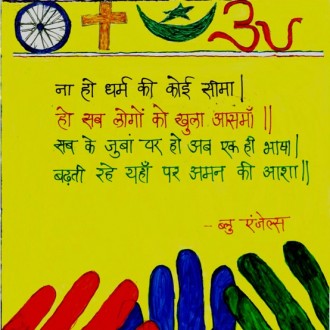 ना हो धर्म की कोई सीमा|
हो सब लोगों को खुला आसमाँ ||
सब के जुबां पर हो अब एक ही भाषा|
बढ़ती रहे यहाँ पर अमन की आशा||
-- ब्लु एंजेल्स